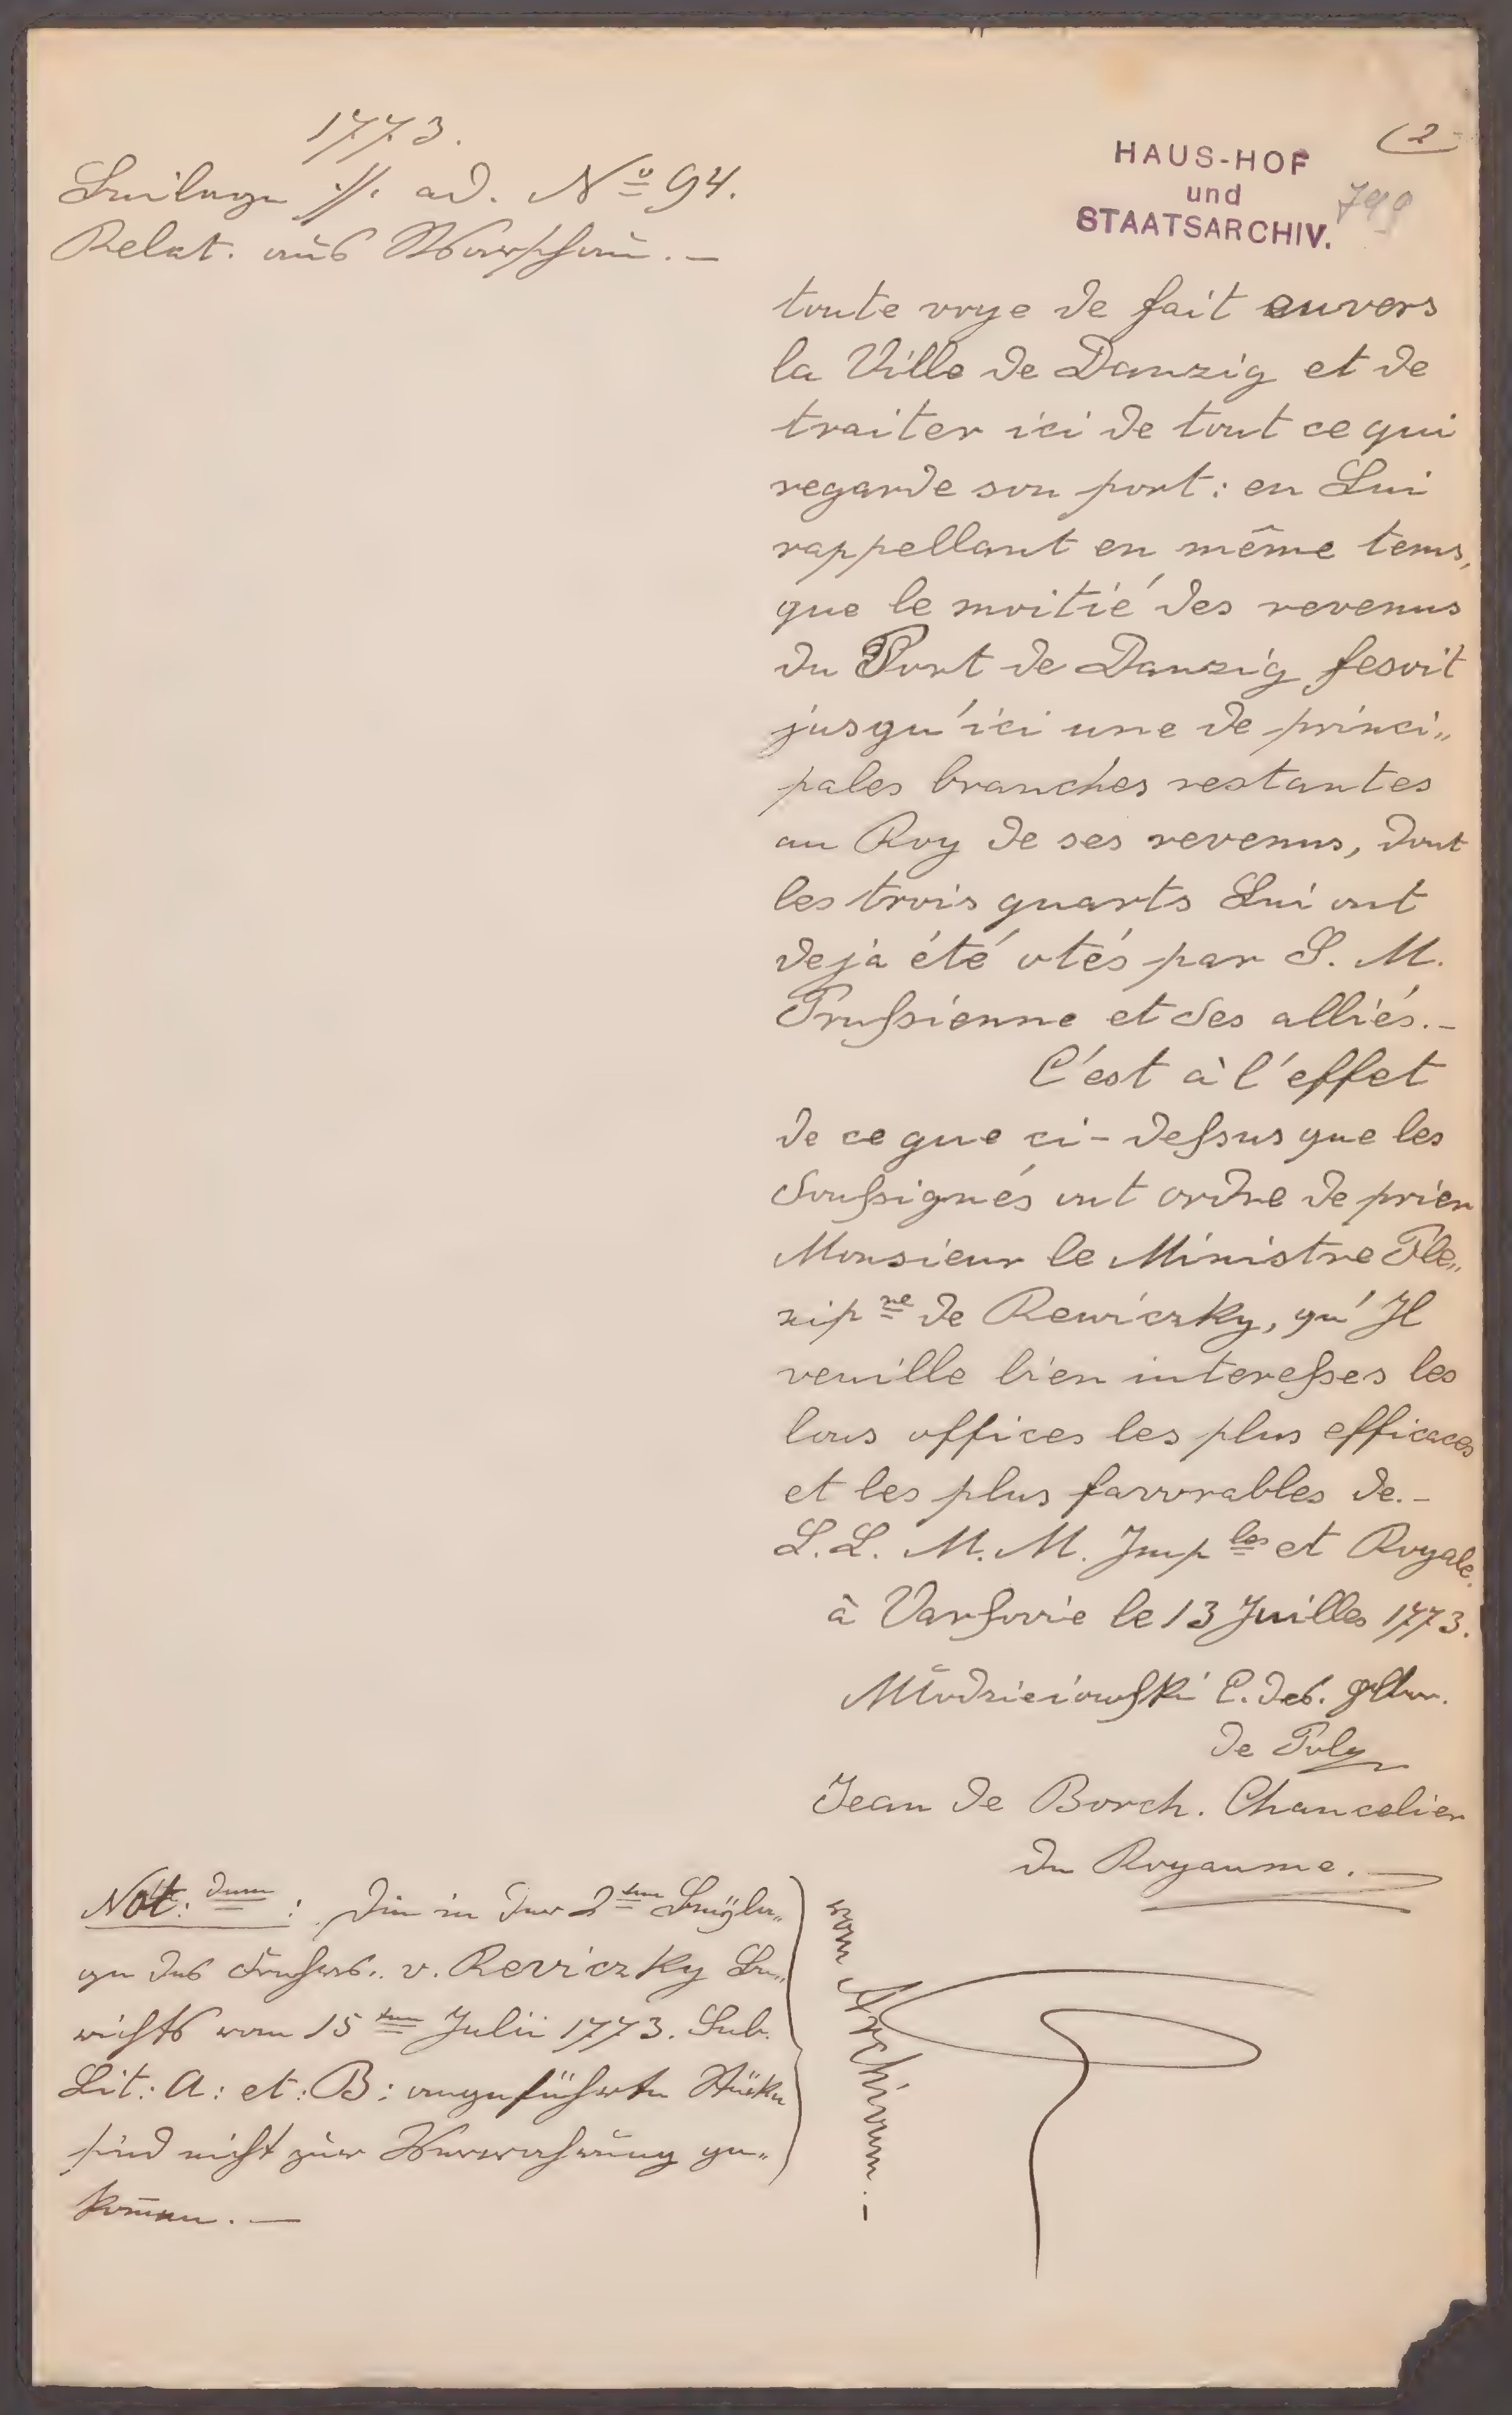 1773.
Beilage ·//. ad. Nº 94.
Relat. aus Warschau. —
(2
HAUS-HOF
und
STAATSARCHIV.
toute voye de fait euvers
la Ville de Danzig et de
traiter ici de tout ce qui
regarde son port: en Lui
rappellant en même tems,
que le moitié des revenus
du Port de Danzig fesoit
jusqu'ici une de princi„
pales branches restantes
au Roy de ses revenus, dont
les trois quarts Lui ont
dejà été otés par S. M.
Prußienne et Ses alliés. –
C'est à l'effet
de ce que ci-deßus que les
Soußignés ont ordre de prier
Monsieur le Ministre Ple„
nip re de Rewiczky, qu'Il
veuille bien intereßes les
bons offices les plus efficaces
et les plus favorables de. –
L.L. M.M. Imp les et Royale.
à Varsovie le 13 Juilles 1773.
Młodzieiowski C. des.
de Pol
Jean de Borch. Chancelier
du Royaume. —
Not: dum : Die in der 2 ten Beÿla„
ge des Freyherrl.. v. Reviczky Be„
richts vom 15 ten Julii 1773. Sub.
Lit: A: et: B: angeführten Stüke
sind nicht zur Verwahrung ge„
kom̄en. —
vom Archivum. –